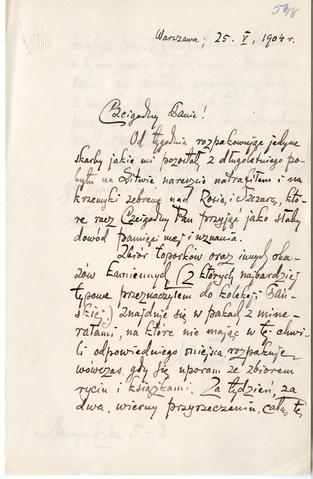 548.
Warszawa; 25. V, 1904 r.
Czcigodny Panie!
Od tygodnia rozpakowuję jedyne
skarby jakie mi pozostały z długoletniego po-
bytu na Litwie nareszcie natrafiłem i na
krzemyki zebrane nad Rosią i Szczarą, któ-
re racz Czcigodny Pan przyjąć jako słaby
dowód pamięci mej i uznania.
Zbiór toporków oraz innych oka-
zów kamiennych (z których najbardziej
typowe przeznaczyłem do kolekcji Pań-
skiej) znajduje się w pakach z mine-
rałami, na które nie mając w tej chwi-
li odpowiedniego miejsca, rozpakuję
wówczas gdy się uporam ze zbiorem
rycin i książkami. Za tydzień, za
dwa, wierny przyrzeczeniu, całą tę
5-3.